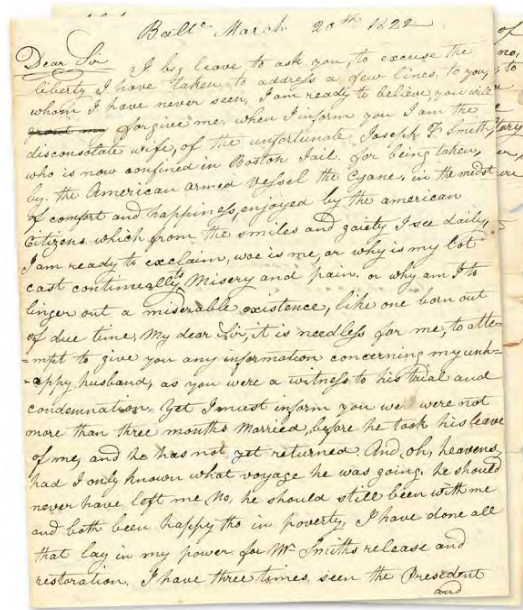 Balte March 20th 1822
Dear Sir I beg leave to ask you, to excuse the
liberty I have taken, to address a few lines, to you,
whom I have never seen, I am ready to believe, you will
forgive me, when I inform you I am the
disconsolate wife, of the unfortunate Joseph F Smith,
who is now confined in Boston Jail. for being taken,
by. the American armed vessel the Cyane, in the medst
of comfort and happiness, enjoyed by the american
Citizens, which from the smiles and gaiety I see daily,
I am ready to exclaim, woe is me, or why is my lot
cast continually to Misery and pain. or why am I to
linger out a miserable existence, like one born out
of due time, My dear Sir, it is needless for me, to atte-
-mpt to give you any information concerning my unh-
-appy husband, as you were a witness to his trial and
condemnation. Yet I must inform you we were not
more than three months Married, before he took his leave
of me, and he has not yet returned And oh, heavens,
had I only known what voyage he was going. he should
never have left me No, he should still been with me
and both been happy tho in poverty, I have done all
that lay in my power for Mr Smiths release and
restoration. I have three times seen the President
and
of
no,
to